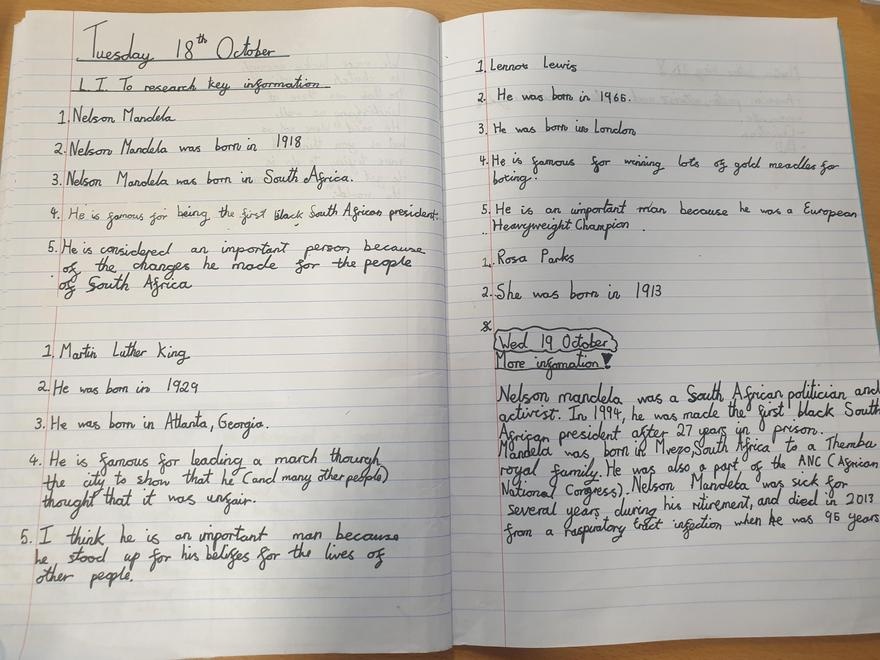 Tuesday 18th October
L.I. To research key information
1. Nelson Mandela
2. Nelson Mandela was born in 1918
3. Nelson Mandela was born in South Africa.
4. He is famous for being the first black South African president.
5. He is considered an important person because
of the changes he made for the people
of South Africa
1. Martin Luther King
2. He was born in 1929
3. He was born in Atlanta, Georgia.
4. He is famous for leading a march though
the city to show that he (and many other people)
thought that it was unfair.
5. I think he is an important man because
he stood up for his beliefes for the lives of
other people.
1. Lennox Lewis
2. He was born in 1965.
3. He was born in London
4. He is famous for winning lots of gold meadles for
boxing.
5. He is an important man because he was a European
Heavyweight Champion.
1. Rosa Parks
2. She was born in 1913
Wed 19 October
More information!
Nelson mandela was a South African politician and
activist. In 1994, he was made the first black South
African president after 27 years in prison.
Mandela was born in Mvezo, South Africa to a Themba
royal family. He was also a part of the ANC (African
National Congress). Nelson Mandela was sick for
several years during his ritirement, and died in 2013
from a raspiratory tract infection when he was 95 years